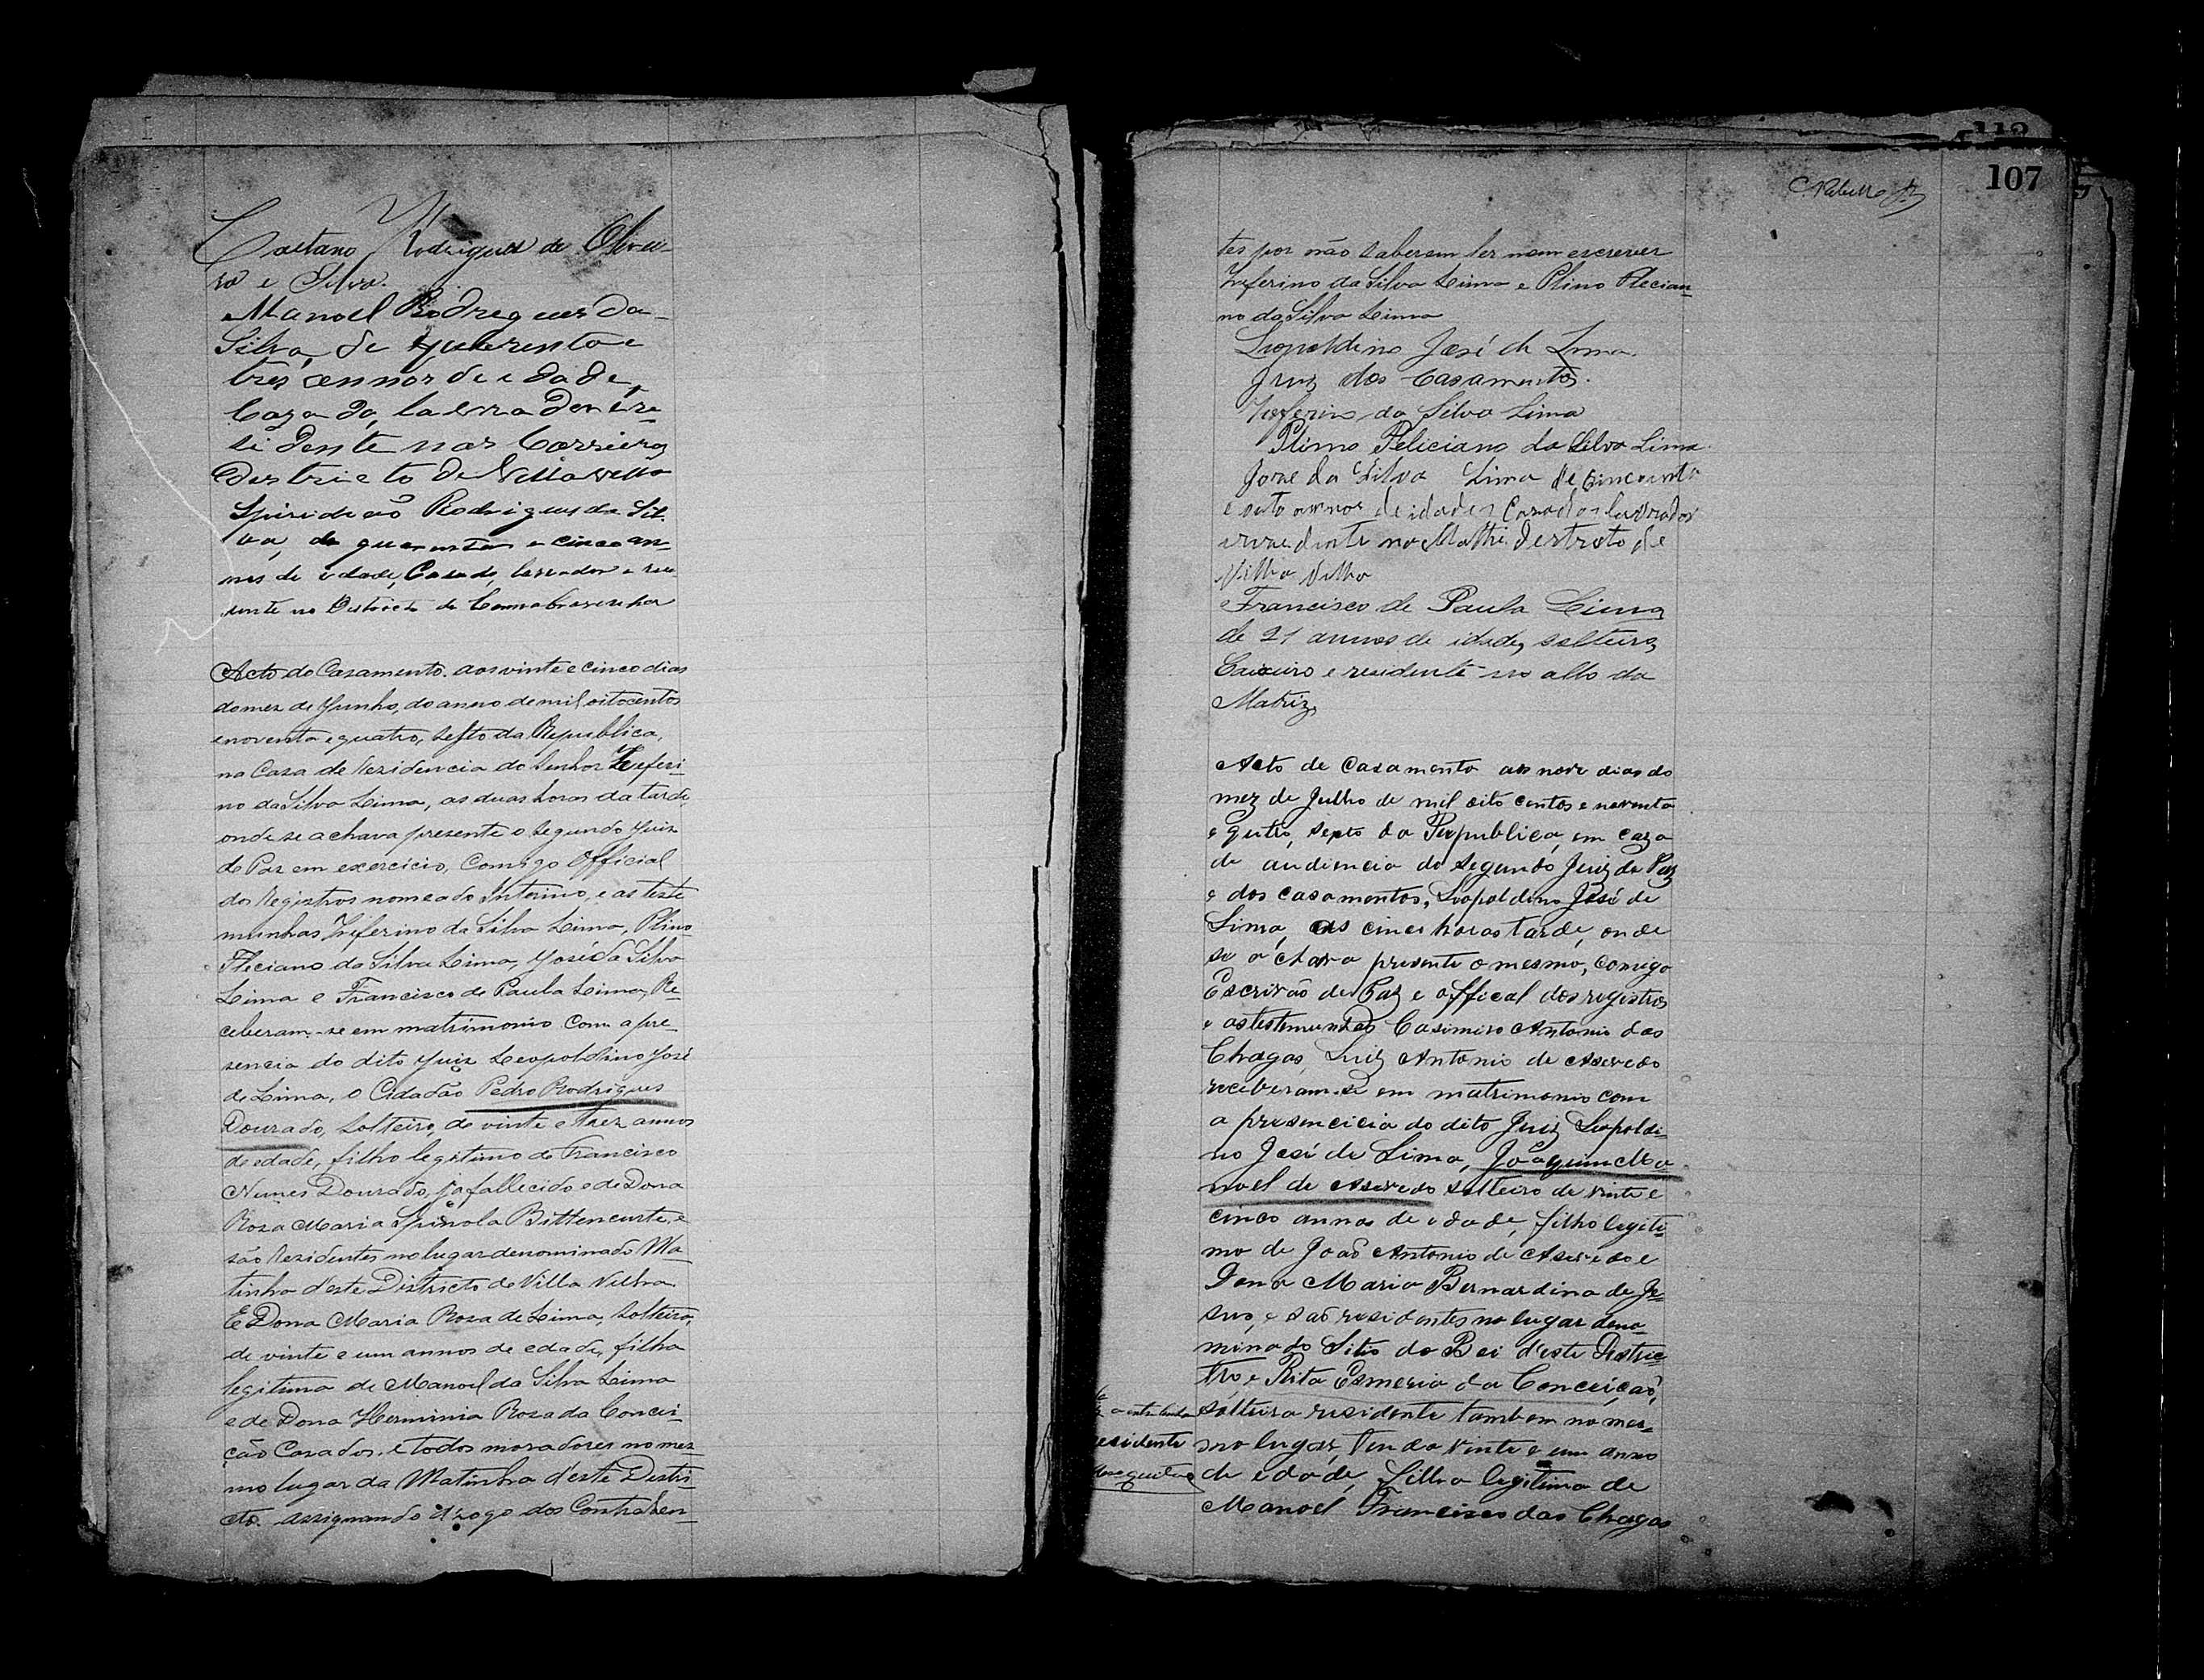 Caetano Rodrigues de Olivei-
ra e Silva.
Manoel Rodregues da
Silva, de quarenta e
tres annos de idade,
Cazado, lavrador e re-
sidente nas
Destricto de Villa velha
Spiridião Rodrigues da Sil-
va, de quarenta e cinco an-
nos de idade, Casado, lavrador e
no Districto de
Acto do Casamento. aos vinte e cinco dias
do mez de Junho, do anno de mil oitocentos
e noventa e quatro, sesto da Republica,
na Caza de Rezidencia do Senhor Zeferi-
no da Silva Leima, as duas horas da tarde
onde se achava presente o segundo Juiz
de Paz em exercicio, Comigo Official
dos Registros nomeado Interino, e as teste
munhas Zeferino da Silva Leima, Plino
Fleciano da Silva Leima, José da Silva
Leima e Francisco de Paula Leima, Re-
ceberam-se em matrimonio Com a pre-
sencia do dito Juiz Leopoldino José
de Leima, o Cidadão Pedro Rodrigues
Dourado, Solteiro, de vinte e trez annos
de edade, filho legitimo de Francisco
Nunes Dourado, já fallecido e de Dona
Roza Maria Spinola Bittencurte, e
são Rezidentes no lugar denominado Ma-
tinha d'este Districto de Villa Velha
E Dona Maria Roza de Leima, Solteira,
de vinte e um annos de edade, filha
legitima de Manoel da Silva Leima
e de Dona Herminia Roza da Concei-
ção Cazados. e todos moradores no mes
mo lugar da Matinha d'este Distri-
cto. assignando a rogo dos Contrahen-
107
tes por não saberem ler nem escrever
Zeferino da Silva Leima e Plino Flecian-
no da Silva Leima
Leopoldino José de Lima.
Juiz dos Casamentos.
Zeferino da Silva Lima
Plimo Feliciano da Silva Lima
Jose da Silva Lima de cincoenta
e sete annos de idade, Casado, lavrador
na Destrato de
Villa Velha
e Francisco de Paula Lima
de 21 annos de idade, solteiro,
Caixeiro e residente no alto da
Matriz,
Acto de Casamento aos nove dias do
mez de Julho de mil oito centos e noventa
e qutro, sexto da Republica, em caza
de audiencia do segundo Juiz de Paz
e dos casamentos, Leopoldino José de
Lima, as cinco horas tarde, onde
se achava presente o mesmo, comigo
Escrivão de Paz e offical dos registros
e as testemunhas Casimiro Antonio das
Chagas, Luiz Antonio de Asevedo
receberam-se em matrimonio com
a presencicia do dito Juiz Leopoldi-
no José de Lima, Joaquim Ma-
noel de Asevedo solteiro de vinte e
cinco annos de idade, filho legiti-
mo de João Antonio de Asevedo e
Dona Maria Bernardina de Je-
sus, e são residentes no lugar deno-
minado Sitio do Boi d'este Distric-
tro, e Rita Esmeria da Conceição,
solteira residente tambem no mes-
mo lugar, tendo vinte e um annos
de idade, filha legitima de
Manoel Francisco das Chagas